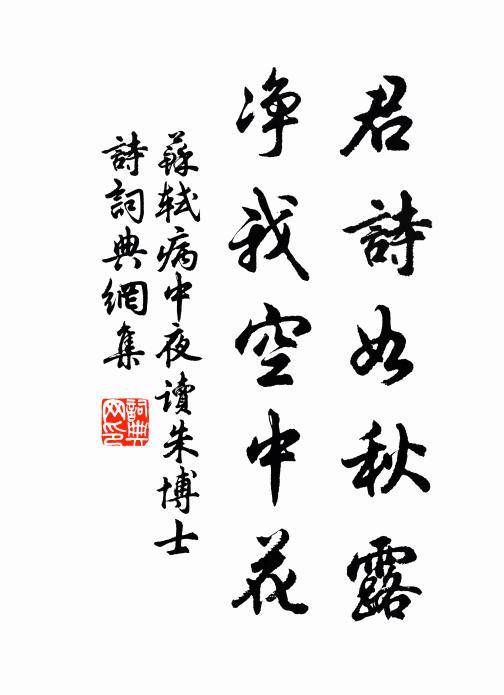 君詩如秋露
净我空中花
蘇軾病中夜读朱博士
詩詞典網集
詞典网印